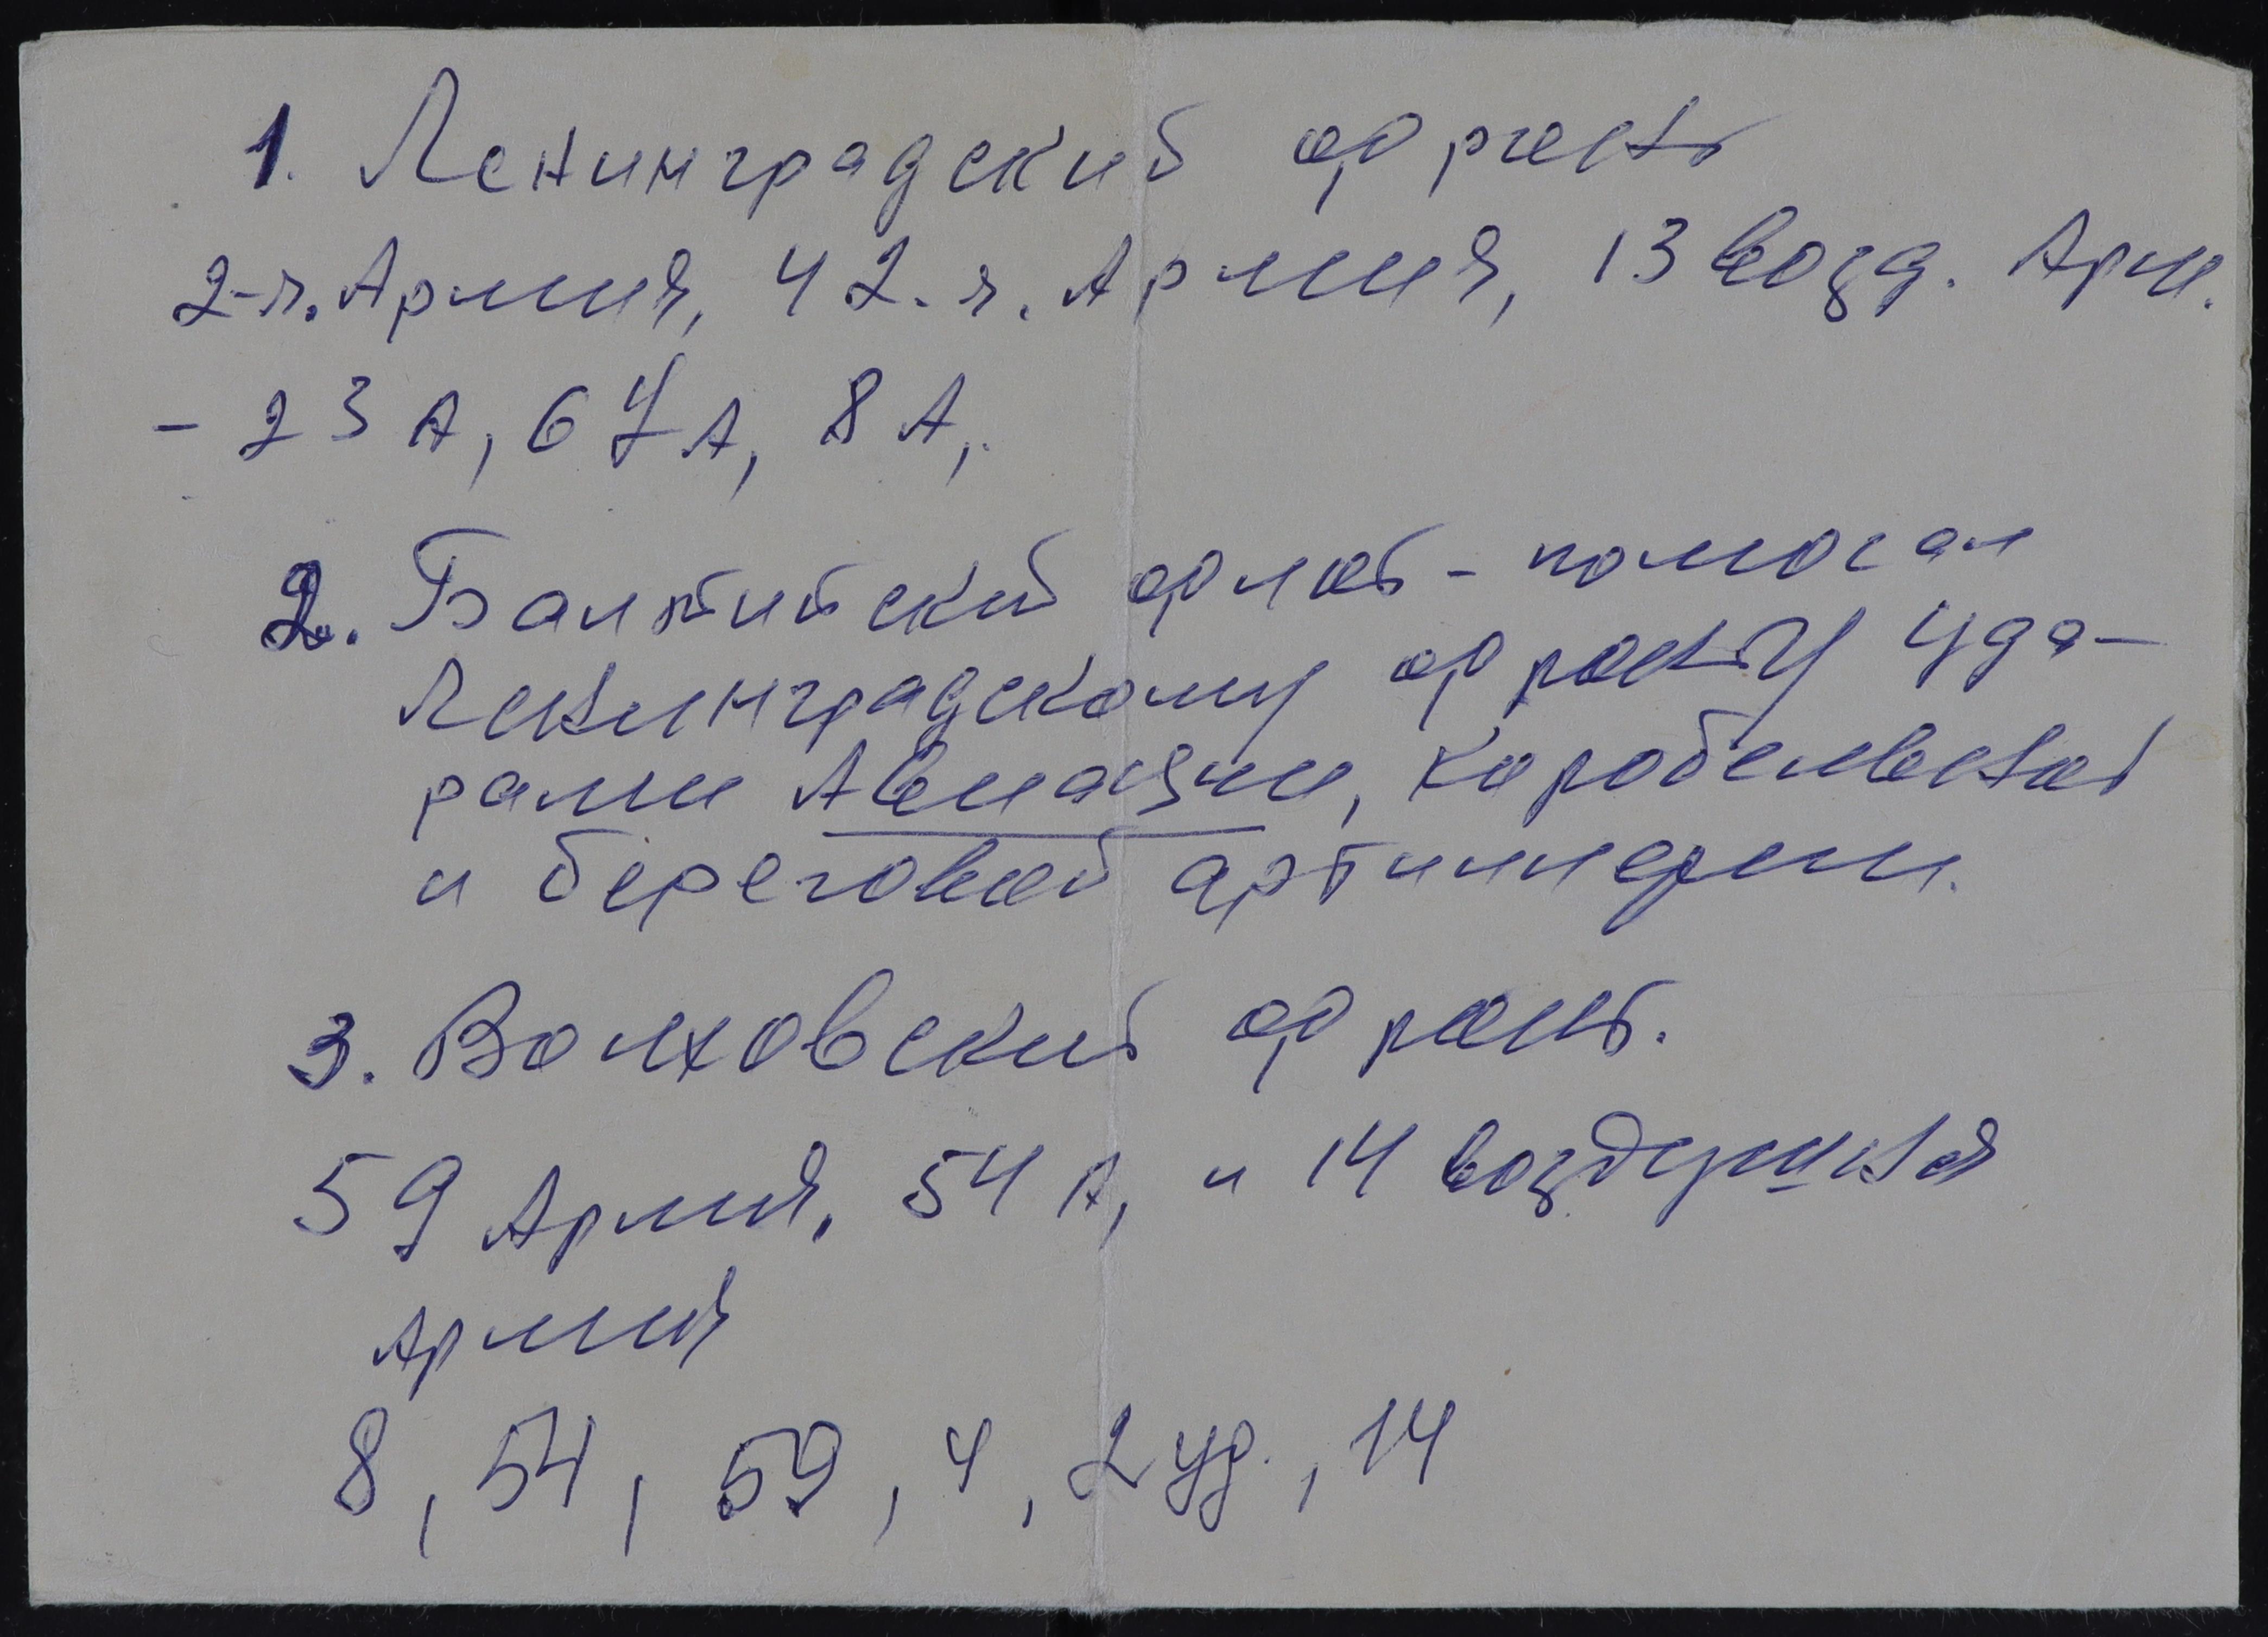 1. Ленинградский фронт
2-я. Армия, 42-я. Армия, 13 возд. Арм.
- 23 А, 67 А, 8 А,
2. Балтийский флот - помогал
Ленинградскому фронту уда-
рами Авиации, коробельной
и береговой артиллерии.
3. Волховский фронт.
59 Армия, 54 А, и 14 воздушная
Армия
8, 54, 59, 4, 2 уд., 14